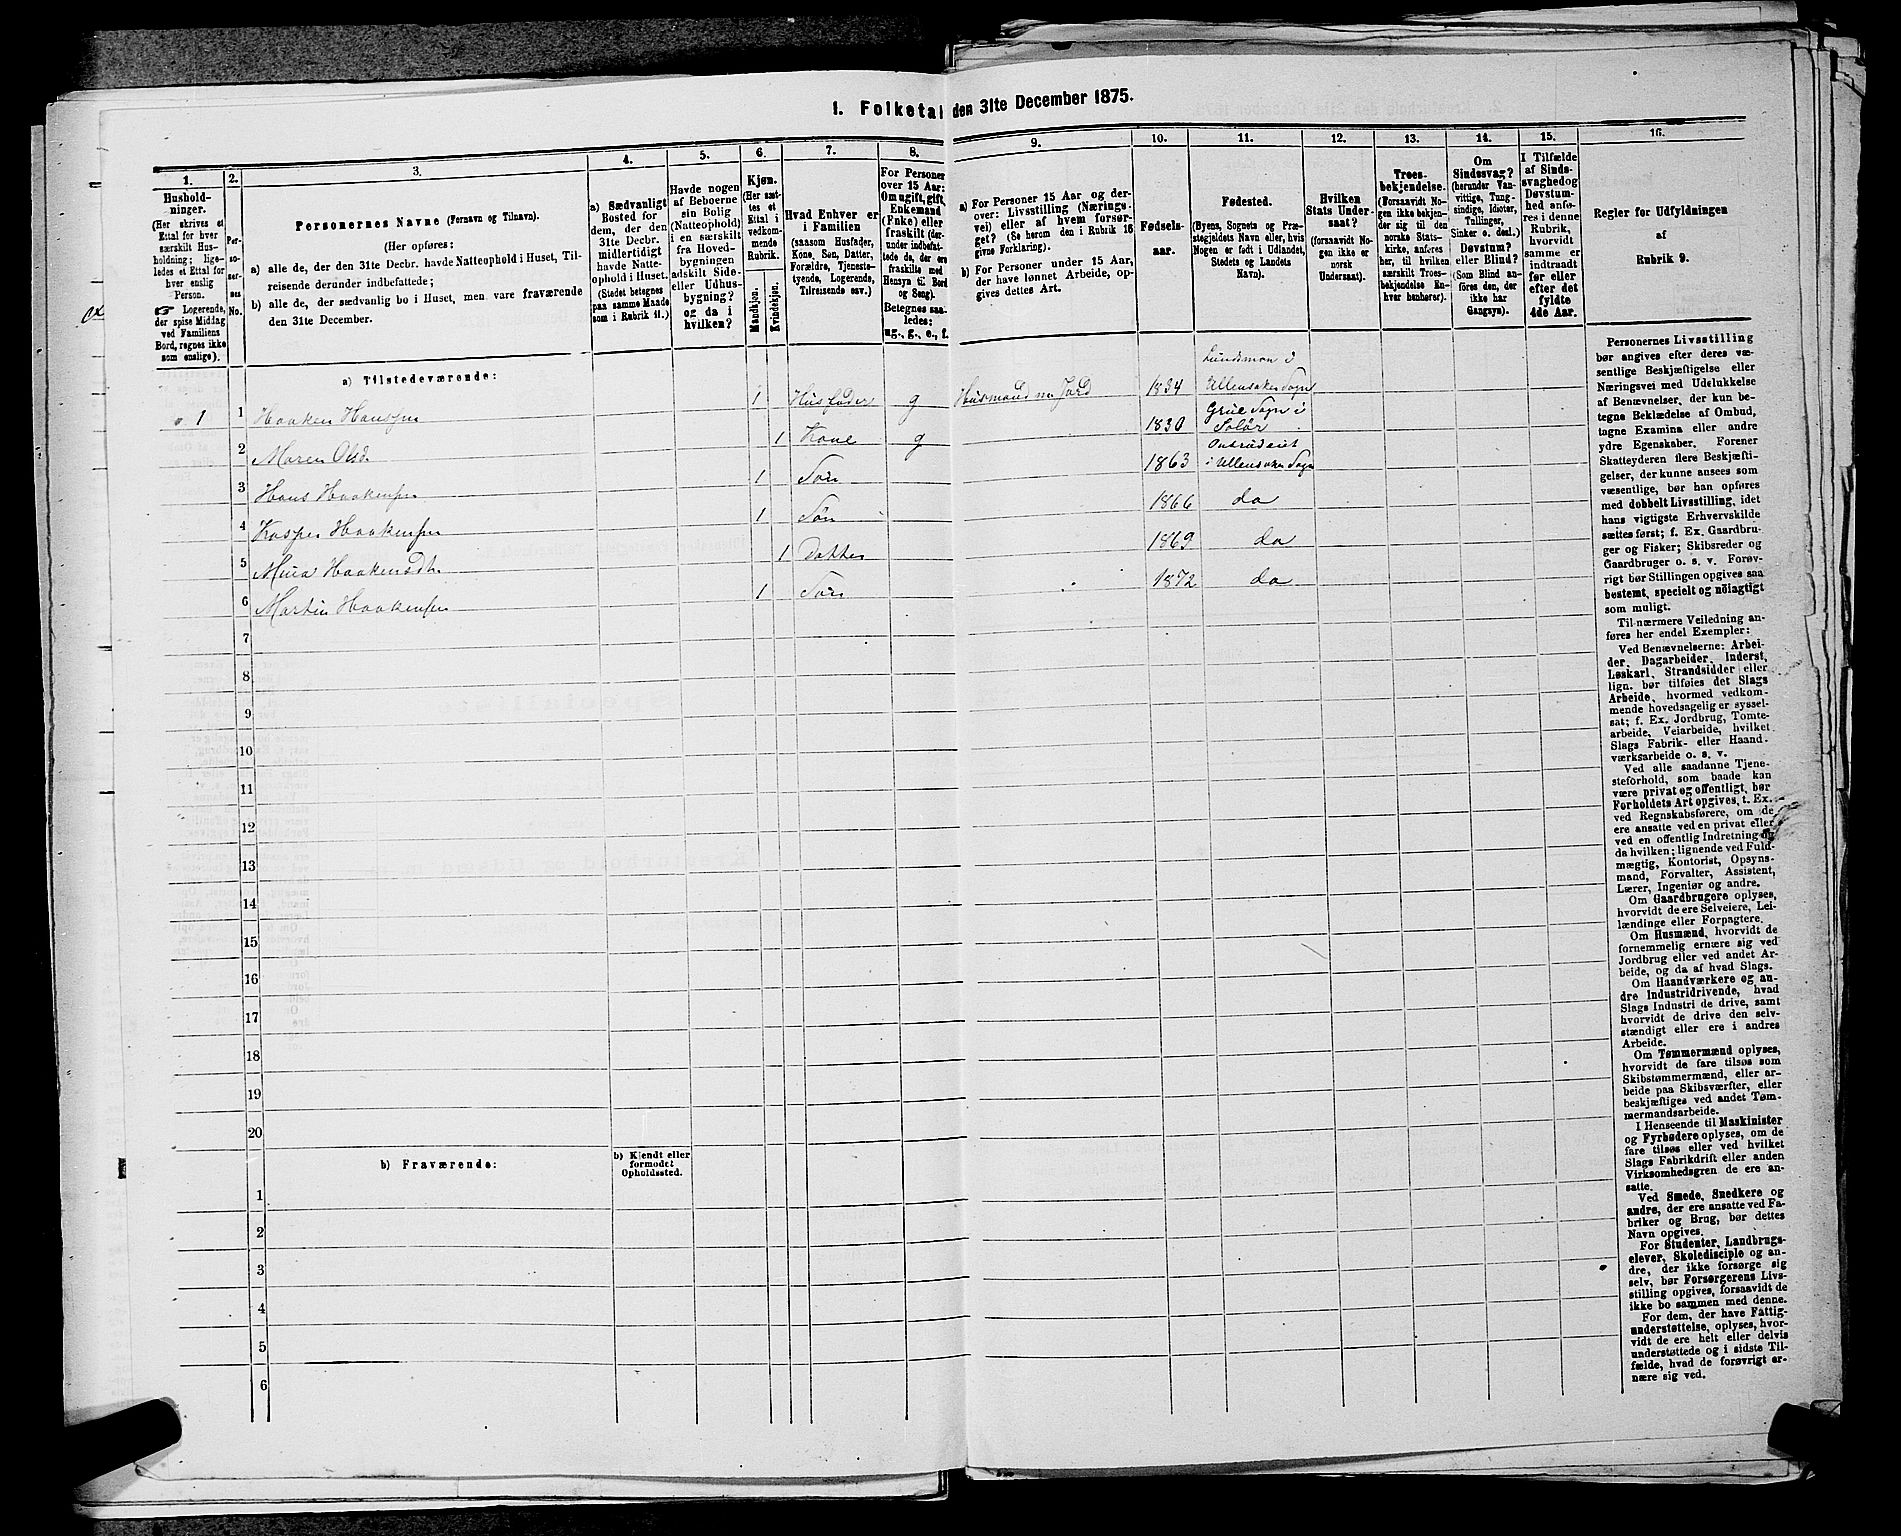 1. Folketal den 31te December 1875.
1.
2.
3.
4.
5.
6.
7.
8.
9.
10.
11.
12.
13.
14.
15.
16.
Hushold-
ninger.
(Her skrives et
Ettal for hver
særskilt Hus-
holdning; lige-
ledes et Ettal for
hver enslig
Person.
☞ Logerende,
der spise Middag
ved Familiens
Bord, regnes ikke
som enslige).
Per-
so-
ner-
nes
No.
Personernes Navne (Fornavn og Tilnavn).
(Her opføres:
a) alle de, der den 31te Decbr. havde Natteophold i Huset, Til-
reisende derunder indbefattede;
b) alle de, der sædvanlig bo i Huset, men vare fraværende
den 31te December.
a) Sædvanligt
Bosted for
dem, der den
31te Decbr.
midlertidigt
havde Natte-
ophold i Huset.
(Stedet betegnes
paa samme Maade
som i Rubrik 11.)
Havde nogen
af Beboerne
sin Bolig
(Natteophold)
i en særskilt
fra Hoved-
bygningen
adskilt Side-
eller Udhus-
bygning?
og da i
hvilken?
Kjøn.
(Her sæt-
tes et
Ettal i
vedkom-
mende
Rubrik.
Mandkjøn.
Kvindekjøn.
Hvad Enhver er
i Familien
(saasom Husfader,
Kone, Søn, Datter,
Forældre, Tjeneste-
tyende, Logerende,
Tilreisende osv.)
For Personer
over 15 Aar:
Om ugift, gift,
Enkemand
(Enke) eller
fraskilt (der-
under indbefat-
tede de, der ere
fraskilte med
Hensyn til Bord
og Seng).
Betegnes saa-
ledes:
ug., g., e., f.
a) For Personer 15 Aar og der-
over: Livsstilling (Nærings-
vei) eller af hvem forsør-
get? (Se herom den i Rubrik 16
givne Forklaring).
b) For Personer under 15 Aar,
der have lønnet Arbeide, op-
gives dettes Art.
Fødsels-
aar.
Fødested.
(Byens, Sognets og Præ-
stegjeldets Navn eller, hvis
Nogen er født i Udlandet,
Stedets og Landets
Navn).
Hvilken
Stats Under-
saat?
(forsaavidt No-
gen ikke er
norsk
Undersaat).
Troes-
bekjendelse.
(Forsaavidt No-
gen ikke bekjen-
der sig til den
norske Stats-
kirke, anføres
her, til hvilken
særskilt Troes-
bekjendelse En-
hver henhører).
Om
Sindssvag?
(herunder Van-
vittige, Tung-
sindige, Idioter,
Tullinger,
Sinker o. desl.)
Døvstum?
eller Blind?
(Som Blind an-
føres den, der
ikke har
Gangsyn).
I Tilfælde
af Sinds-
svaghed og
Døvstum-
hed anfø-
res i denne
Rubrik,
hvorvidt
samme er
indtraadt
før eller
efter det
fyldte
4de Aar.
Regler for Udfyldningen
af
Rubrik 9.
a) Tilstedeværende:
1 1 Haaken Hanssen 1 Husfader g Husmand m Jord 1834 Lundsmon i
Ullensaker Sogn
2 Maren Olsd. 1 Kone g 1830 Grue Sogn i
Solør
3 Hans Haakensen 1 Søn 1863
i Ullensaker Sogn
4 Kasper Haakensen 1 Søn 1866 do
5 Mina Haakensdt. 1 Datter 1869 do
6 Martin Haakensen 1 Søn 1872 do
7
8
9
10
11
12
13
14
15
16
17
18
19
20
b) Fraværende:
b) Kjendt eller
formodet
Opholdssted.
1
2
3
4
5
6
Personernes Livsstilling
bør angives efter deres væ-
sentlige Beskjæftigelse eller
Næringsvei med Udelukkelse
af Benævnelser, der kun be-
tegne Beklædelse af Ombud,
tagne Examina eller andre
ydre Egenskaber. Forener
Skatteyderen flere Beskjæfti-
gelser, der kunne ansees som
væsentlige, bør han opføres
med dobbelt Livsstilling, idet
hans vigtigste Erhvervskilde
sættes først; f. Ex. Gaardbru-
ger og Fisker; Skibsreder og
Gaardbruger o. s. v. Forøv-
rigt bør Stillingen opgives saa
bestemt, specielt og nöiagtigt
som muligt.
Til nærmere Veiledning an-
føres her endel Exempler:
Ved Benævnelserne: Arbei-
der, Dagarbeider, Inderst,
Løskarl, Strandsidder eller
lign. bør tilføies det Slags
Arbeide, hvormed vedkom-
mende hovedsagelig er syssel-
sat; f. Ex. Jordbrug, Tomte-
arbeide, Veiarbeide, hvilket
Slags Fabrik- eller Haand-
værksarbeide o. s. v.
Ved alle saadanne Tjene-
steforhold, som baade kan
være privat og offentligt, bør
Forholdets Art opgives, t. Ex.
ved Regnskabsførere, om de
ere ansatte ved en privat eller
ved en offentlig Indretning og
da hvilken; lignende ved Fuld-
mægtig, Kontorist, Opsyns-
mand, Forvalter, Assistent,
Lærer, Ingeniør og andre.
Om Gaardbrugere oplyses,
hvorvidt de ere Selveiere, Lei-
lændinge eller Forpagtere.
Om Husmænd, hvorvidt de
fornemmelig ernære sig ved
Jordbrug eller ved andet Ar-
beide, og da af hvad Slags.
Om Haandværkere og an-
dre Industridrivende, hvad
Slags Industri de drive, samt
hvorvidt de drive den selv-
stændigt eller ere i andres
Arbeide.
Om Tømmermænd oplyses,
hvorvidt de fare tilsøs som
Skibstømmermænd, eller ar-
beide paa Skibsværfter, eller
beskjæftiges ved andet Tøm-
mermandsarbeide.
I Henseende til Maskinister
og Fyrbødere oplyses, om de
fare tilsøs eller ved hvilket
Slags Fabrikdrift eller anden
Virksomhedsgren de ere an-
satte.
Ved Smede, Snedkere og
andre, der ere ansatte ved Fa-
briker og Brug, bør dettes
Navn opgives.
For Studenter, Landbrugs-
elever, Skoledisciple og an-
dre, der ikke forsørge sig
selv, bør Forsørgerens Livs-
stilling opgives, forsaavidt de
ikke bo sammen med denne.
For dem, der have Fattig-
understøttelse, oplyses, hvor-
vidt de ere helt eller delvis
understøttede og i sidste Til-
fælde, hvad de forøvrigt er-
nære sig ved.